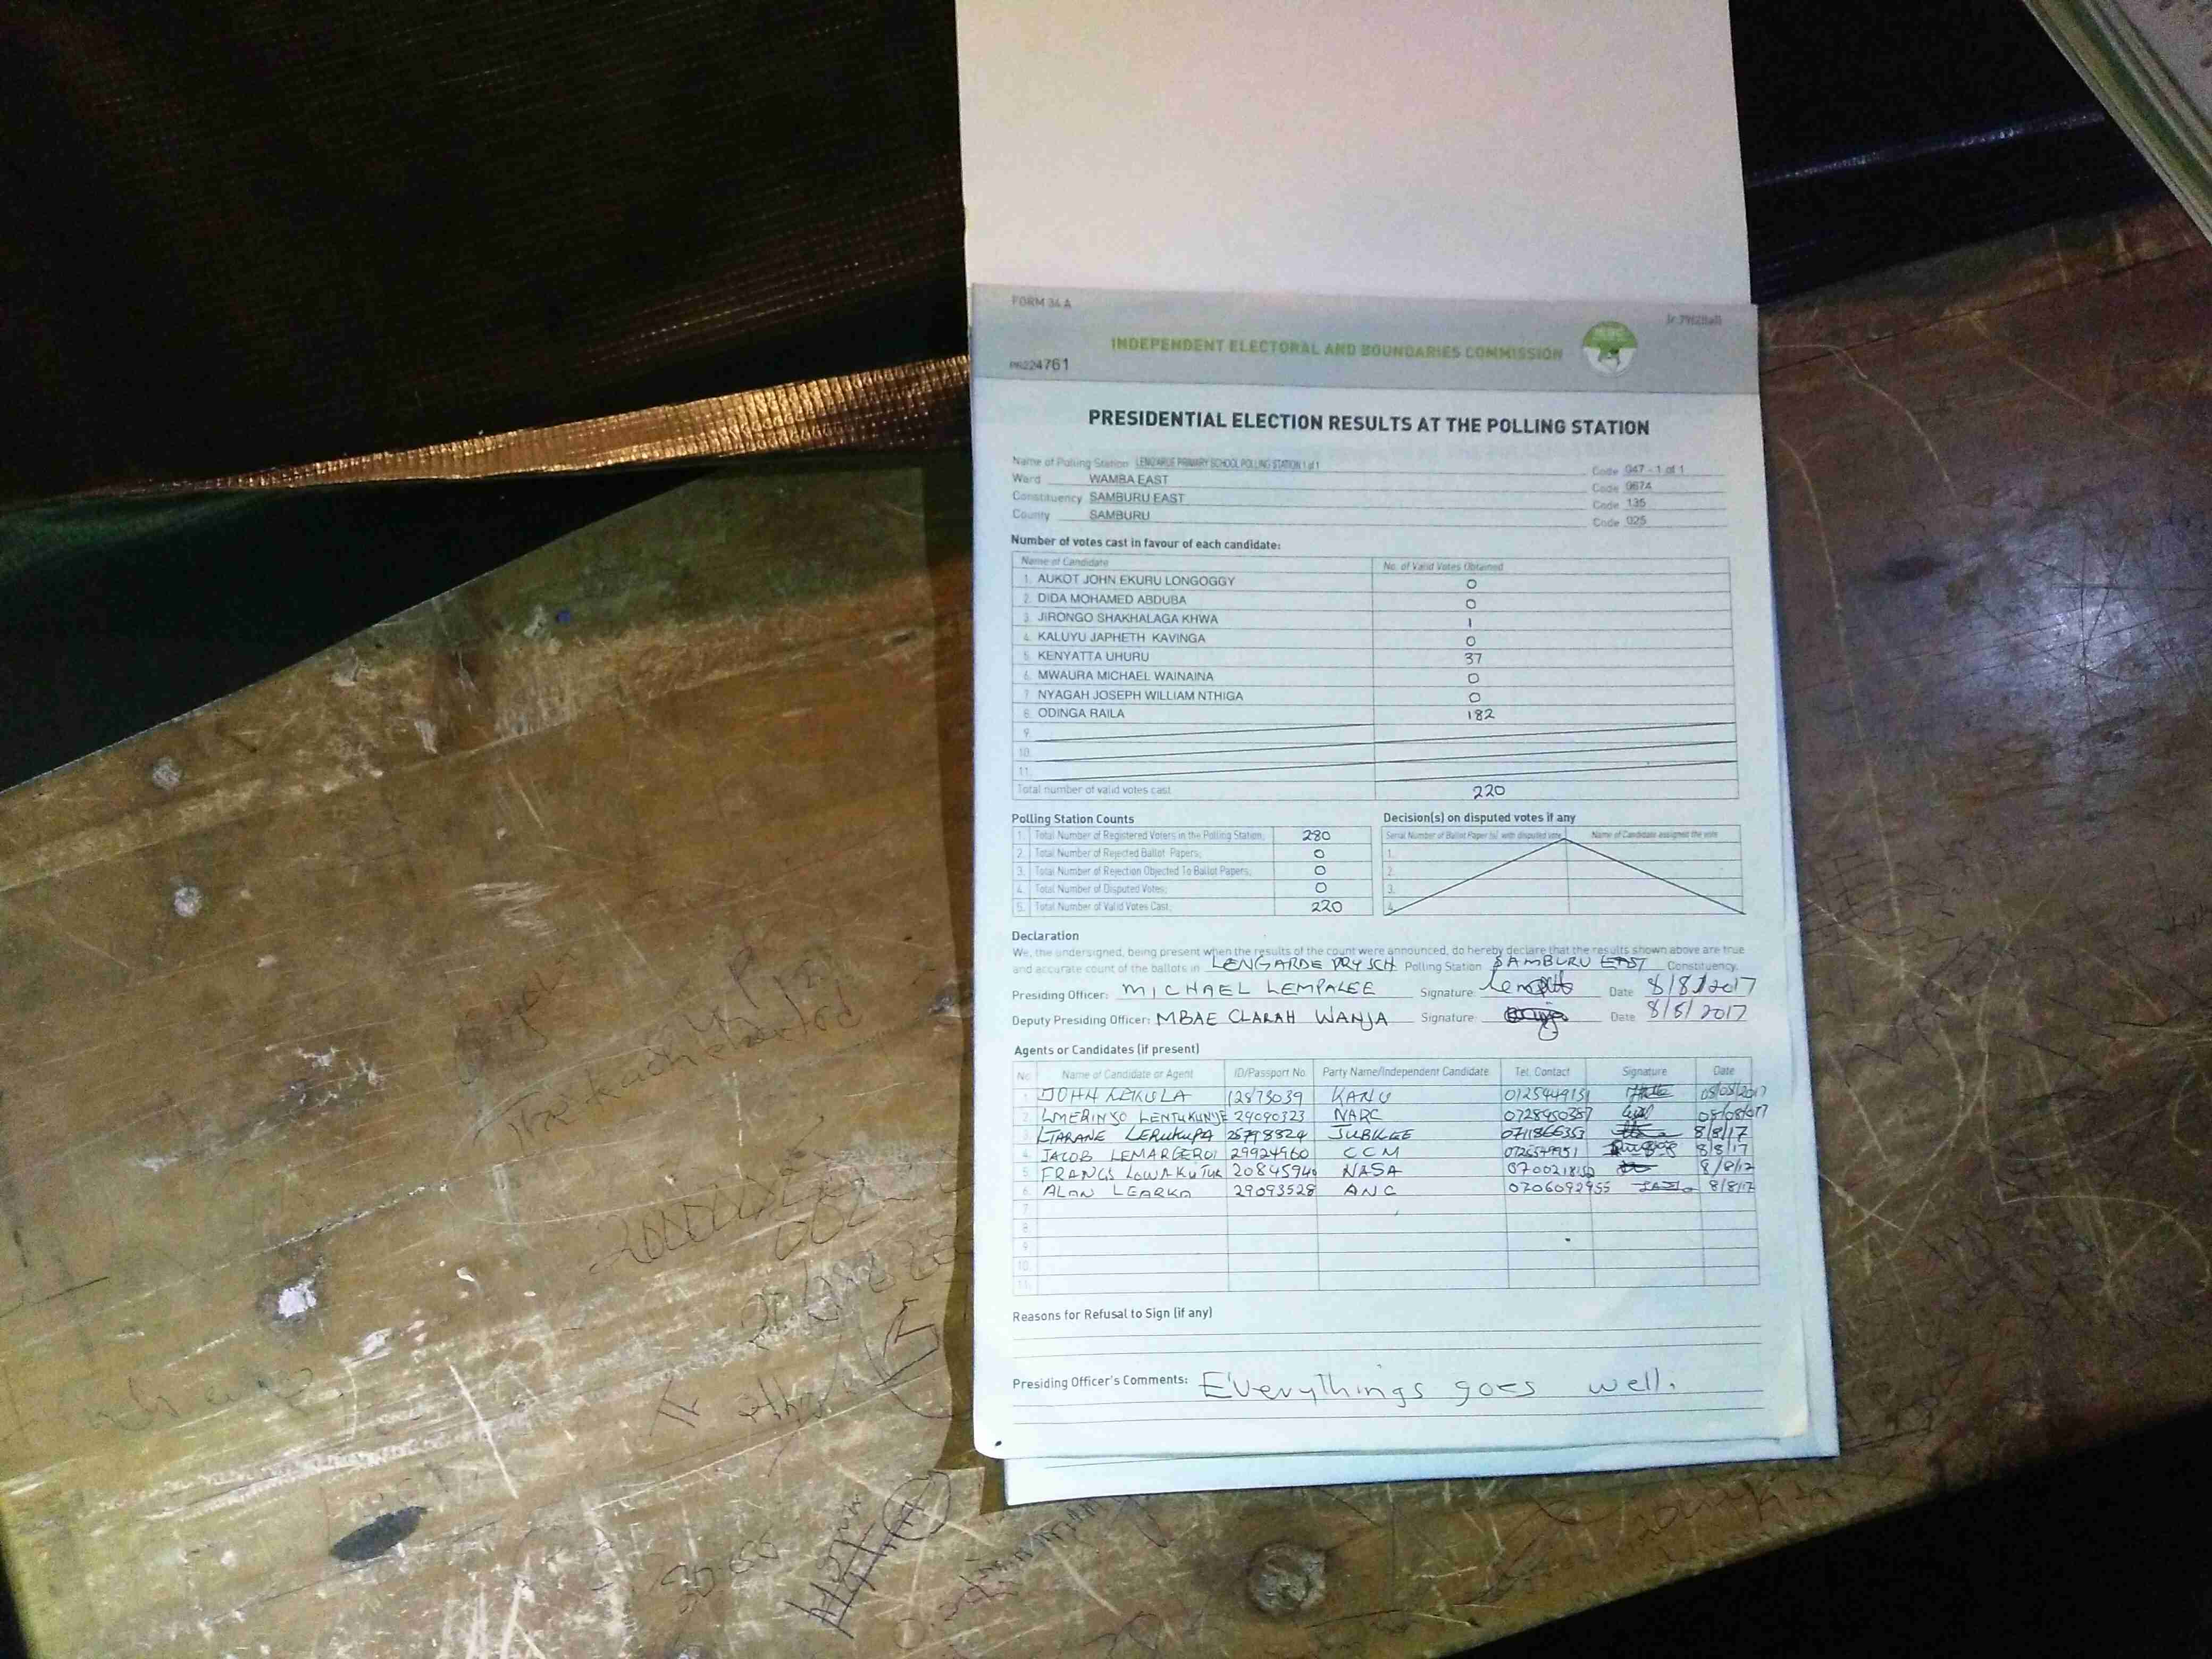 FORM 34 A
INDEPENDENT ELECTORAL AND BOUNDARIES COMMISSION
PRESIDENTIAL ELECTION RESULTS AT THE POLLING STATION
Name of Polling Station PRIMARY SCHOOL POLLING STATION 1 of 1 Code 047 - 1 of 1
Ward WAMBA EAST Code 0674
Constituency SAMBURU EAST Code 135
County SAMBURU Code 025
Number of votes cast in favour of each candidate:
Name of Candidate No. of Valid Votes Obtained
1. AUKOT JOHN EKURU LONGOGGY 0
2. DIDA MOHAMED ABDUBA 0
3. JIRONGO SHAKHALAGA KHWA 1
4. KALUYU JAPHETH KAVINGA 0
5. KENYATTA UHURU 37
6. MWAURA MICHAEL WAINAINA 0
7. NYAGAH JOSEPH WILLIAM NTHIGA 0
8. ODINGA RAILA 182
9.
10.
11.
Total number of valid votes cast 220
Polling Station Counts
1. Total Number of Registered Voters in the Polling Station; 280
2. Total Number of Rejected Ballot Papers; 0
3. Total Number of Rejection Objected To Ballot Papers; 0
4. Total Number of Disputed Votes; 0
5. Total Number of Valid Votes Cast; 220
Decision(s) on disputed votes if any
Serial Number of Ballot Paper (s) with disputed vote Name of Candidate assigned the vote
1.
2.
3.
4.
Declaration
We, the undersigned, being present when the results of the count were announced, do hereby declare that the results shown above are true
and accurate count of the ballots in LENGARDE PRY SCH Polling Station SAMBURU EAST Constituency.
Presiding Officer: MICHAEL LEMPALEE Signature: Date 8/8/2017
Deputy Presiding Officer: MBAE CLARAH WANJA Signature: Date 8/8/2017
Agents or Candidates (if present)
No. Name of Candidate or Agent ID/Passport No. Party Name/Independent Candidate Tel. Contact Signature Date
1. JOHN KANU 08/08/2017
2. 29090323 NARC 08/08/017
3. JUBILEE 8/8/17
4. JACOB 29924960 CCM 8/8/17
5. FRANCIS NASA 8/8/17
6. ALAN LEARKA 29093528 ANC 0706092955 8/8/17
7.
8.
9.
10.
11.
Reasons for Refusal to Sign (if any)
Presiding Officer's Comments: Everythings goes well.